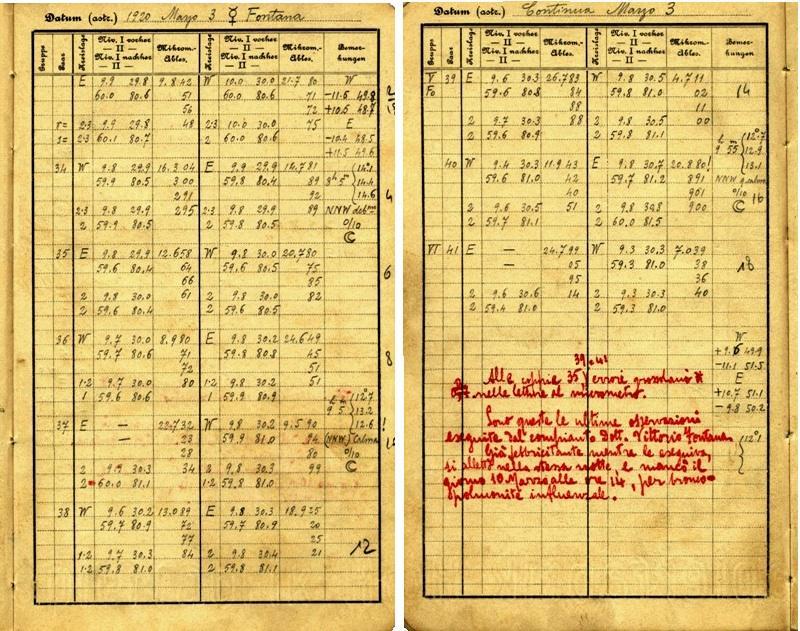 Datum (astr.) 1920 Marzo 3 ☿ Fontana
Gruppe Paar Kreislage Niv. I vorher — II — Niv. I nachher — II — Mikrom.-Ables. Kreislage Niv. I vorher — II — Niv. I nachher — II — Mikrom.-Ables. Bemerkungen
E 9.9 29.8 9.842 W 10.0 30.0 21.7 80 W
60.0 80.6 51 60.0 80.6 71 -11.5 49.8
56 72 +10.5 48.7
2.3 9.9 29.8 48 2.3 10.0 30.0 75 E
2.3 60.1 80.7 2 60.0 80.6 -10.4 48.5
+11.5 49.6
34 W 9.8 29.9 16.304 E 9.9 29.9 14.781
59.9 80.5 300 59.8 80.4 89 14.4
291 92 14.6
2.3 9.8 29.9 295 2.3 9.8 29.9 89 NNW
2 59.9 80.5 2 59.8 80.5 0/10
4
35 E 9.8 29.9 12.658 W 9.8 30.0 20.780
59.6 80.4 64 59.6 80.5 75
66 85
2 9.8 30.0 61 2 9.8 30.0 82
2 59.6 80.4 2 59.6 80.5
6
36 W 9.7 30.0 8.980 E 9.8 30.2 24.649
59.7 80.6 71 59.8 80.8 45
72 51
1.2 9.7 30.0 80 1.2 9.8 30.2 51
1 59.6 80.6 1 59.9 80.9
8
13.2
37 E — 22.732 W ! 9.5 90 12.6
— 23 59.9 81.0 94 (NNW) Calma
28 80 0/10
2 9.9 30.3 34 2 9.8 30.3 99
2 60.0 81.1 1.2 59.8 81.0
38 W 9.6 30.2 13.089 E 9.8 30.3 18.925
59.7 80.9 72 59.7 80.9 20
77 25
1.2 9.7 30.3 84 2 9.8 30.4 21
1.2 59.8 81.0 2 59.8 81.1
12
Datum (astr.) Continua Marzo 3
Gruppe Paar Kreislage Niv. I vorher — II — Niv. I nachher — II — Mikrom.-Ables. Kreislage Niv. I vorher — II — Niv. I nachher — II — Mikrom.-Ables. Bemerkungen
V 39 E 9.6 30.3 26.783 W 9.8 30.5 4.711
Fo 59.6 80.8 84 59.8 81.0 02 14
88 11
2 9.7 30.3 88 2 9.8 30.5 00
2 59.6 80.9 2 59.8 81.1
9 55 12.9
40 W 9.4 30.3 11.943 E 9.8 30.7 20.880! 13.1
59.6 81.0 42 59.7 81.2 891 NNW
40 901 0/10
2 9.6 30.5 51 2 9.8 30.8 900 16
2 59.7 81.1 2 60.0 81.5
VI 41 E — 24.799 W 9.3 30.3 7.039
— 05 59.3 81.0 38 18
95 36
2 9.6 30.6 14 2 9.3 30.3 40
2 59.4 81.0 2 59.3 81.0
W
+9.6 49.9
-11.1 51.5
E
+10.7 51.1
-9.8 50.2
39 e 41
Alle coppie 35) errori grossolani
nelle letture al micrometro.
Sono queste le ultime osservazioni
eseguite dal compianto Dott. Vittorio Fontana
Già febbricitante mentre le eseguiva,
si allettò nella stessa notte, e mancò il
giorno 10 Marzo alle ore 14, per bronco-
polmonite influenzale.